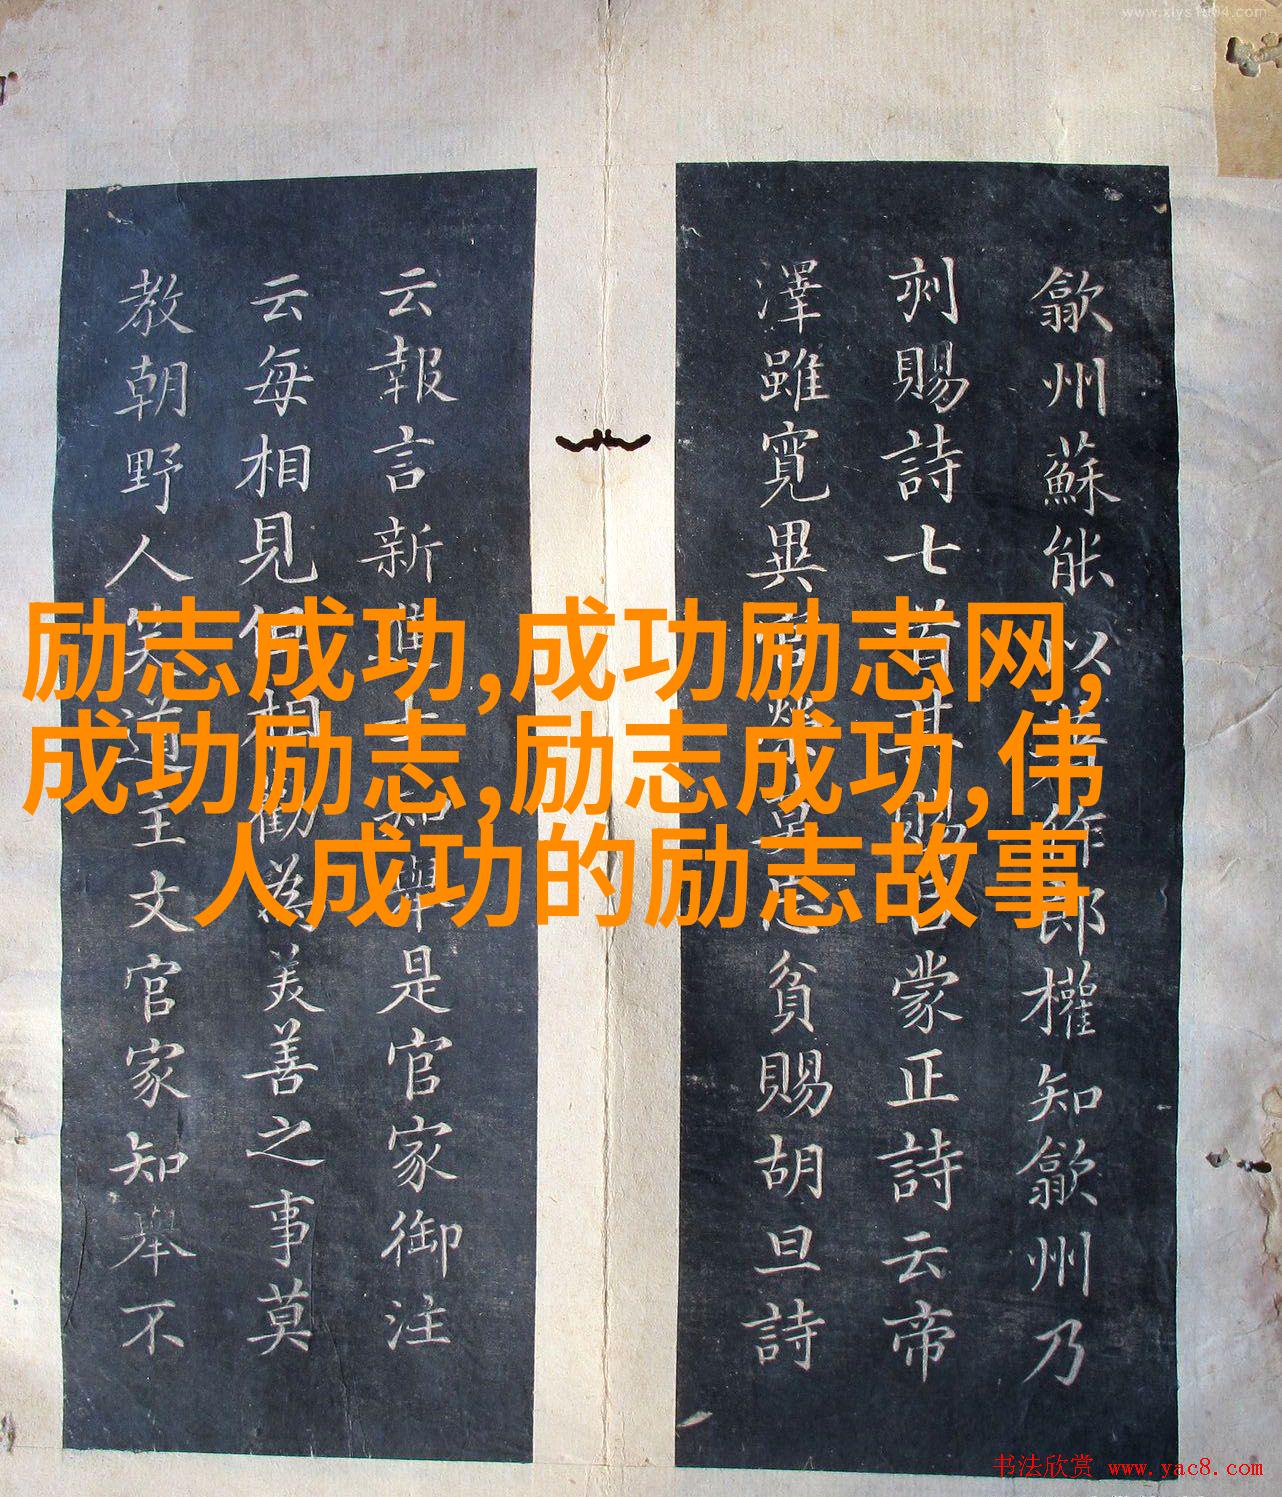 www.xlys1904.com
歙州蘇能以著作郎權知歙州乃
刺賜詩七首其賜呂蒙正詩云帝
澤雖寬異榮莫忘貧賜胡旦詩
云報言新進士知舉是官家御注
云每相見但相勸為美善之事莫
教朝野人笑道主文官家知舉不
励志成功,成功励志网,
成功励志,励志成功,伟
人成功的励志故事
书法欣赏 www.yac8.com